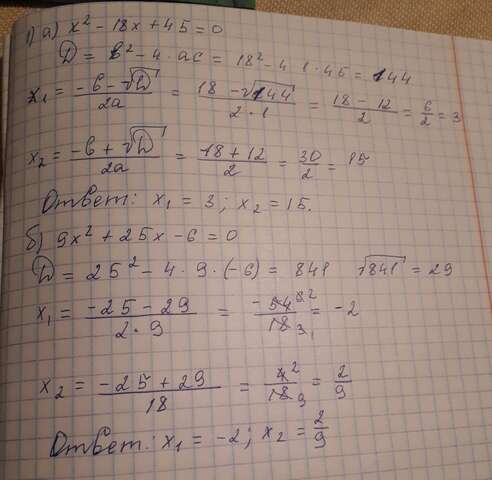 1) а) x² - 18x + 45 = 0
D = b² - 4 · ac = 18² - 4 · 1 · 45 = 144
x₁ = (-b - √D) / 2a = (18 - √144) / (2 · 1) = (18 - 12) / 2 = 6/2 = 3
x₂ = (-b + √D) / 2a = (18 + 12) / 2 = 30/2 = 15
Ответ: x₁ = 3 ; x₂ = 15.
б) 9x² + 25x - 6 = 0
D = 25² - 4 · 9 · (-6) = 841 √841 = 29
x₁ = (-25 - 29) / (2 · 9) = -54/18 = -2
x₂ = (-25 + 29) / 18 = 4/18 = 2/9
Ответ: x₁ = -2 ; x₂ = 2/9